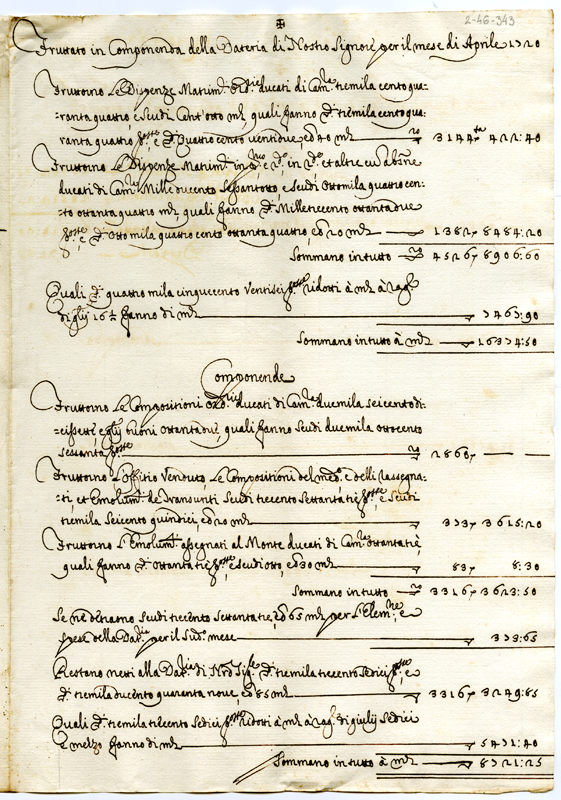 2-46-343
✠
Fruttato in Componenda della Dateria di Nostro Signore per il mese di Aprile 1720
Fruttorno Le Dispenze Matrim. ord.rie ducati di Cam.ra tremila cento qua-
=ranta quattro, e Scudi Cent'otto m.ta quali fanno tremila cento qua-
ranta quattro e Quattro cento ventidue, ed 40 m.ta 3144 422:40
Fruttorno Le Dispenze Matrim. in et altre
ducati di Cam.ra Mille ducento Scudi Ottomila quattro cen-
=to ottanta quattro m.ta quali fanno Milletrecento ottanta due
e Otto mila quattro cento ottanta quattro, ed 20 m.ta 1382 8484:20
Sommano in tutto 4526 8906:60
Quali quattro mila cinquecento Ventisei ridotti à m.ta à rag.e
di giulij 16½ fanno di m.ta 7467:90
Sommano in tutto à m.ta 16374:50
Componende
Fruttorno Le Compositioni ord.rie ducati di Cam.ra duemila Seicento di-
=cisette, e gli buoni Ottantadue, quali fanno Scudi duemila ottocento
sessanta 2860 —
Fruttorno L'Offitio Venduto, Le Compositioni del med.o e delli rassegna-
=ti, et Emolum.ti de Transunti Scudi trecento Settantatre, e Scudi
tremila Seicento quindici, ed 20 m.ta 373 3615:20
Fruttorno L'Emolum.ti assegnati al Monte ducati di Cam.ra Ottantatre,
quali fanno Ottantatre e Scudi otto, ed 30 m.ta 83 8:30
Sommano in tutto 3316 3623:50
Se ne detraono Scudi trecento Settantatre, ed 65 m.ta per L'Elem.ne e
spese della Dat.ria per il Sud.o mese 373:65
Restano netti alla Dat.ria di Nro Sig.re tremila trecento Sedici, e
tremila ducento quaranta nove, ed 85 m.ta 3316 3249:85
Quali tremila trecento Sedici ridotti à m.ta à rag.e di giulij Sedici
e mezzo fanno di m.ta 5471:40
Sommano in tutto à m.ta 8721:25